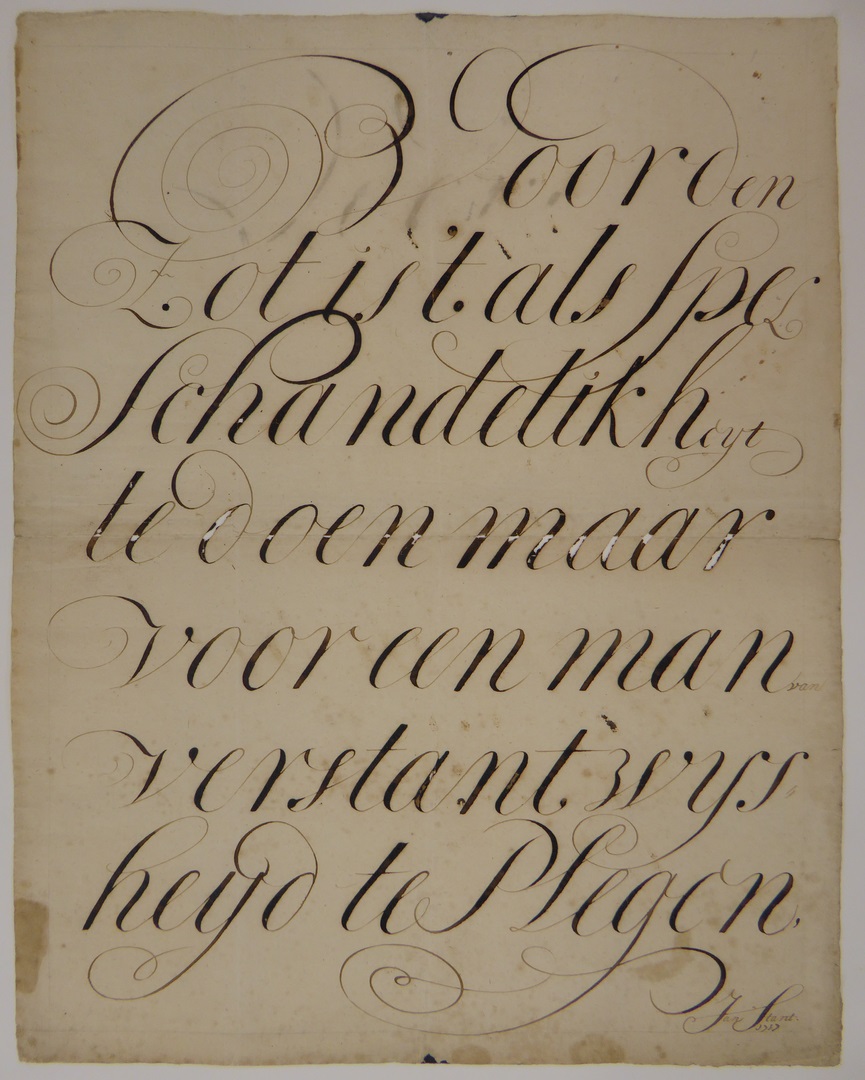 Voor den
Zot is't als spel
Schandelikheyt
te doen maar
voor een man van
verstant, wys-
heyd te Plegen.
Jan Stant.